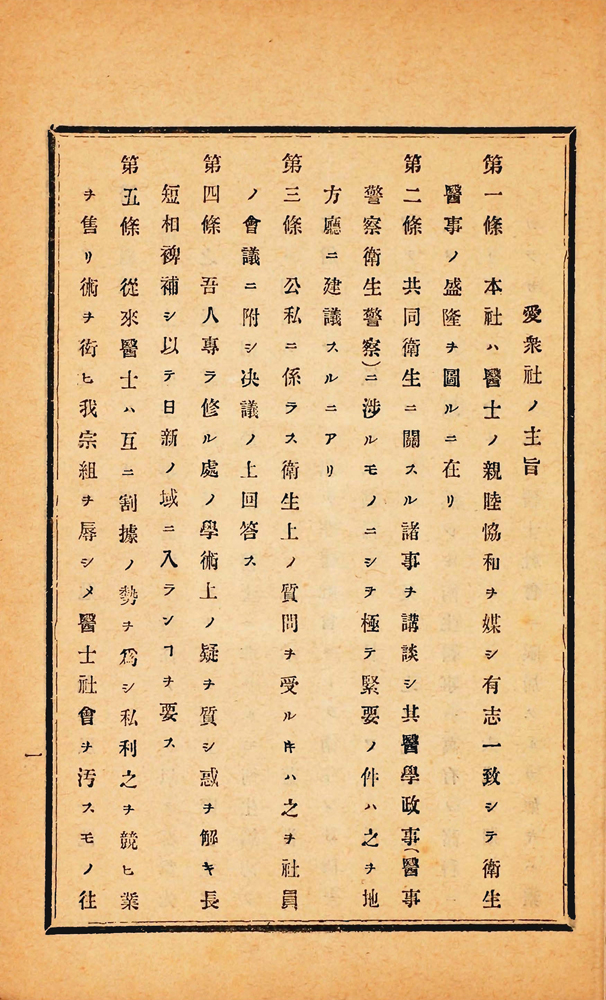 愛衆社ノ主旨
第一條　本社ハ醫士ノ親陸恊和ヲ媒シ有志一致シテ衛生
醫事ノ盛隆ヲ圖ルニ在リ
第二條　共同衛生ニ關スル諸事ヲ講談シ其醫學政事(醫事
警察衛生警察)ニ涉ルモノニシヲ極テ緊要ノ件ハ之ヲ地
方廳ニ建議スルニアリ
第三條　公私ニ係ラス衛生上ノ質問ヲ受ルキハ之ヲ社員
ノ會議ニ附シ决議ノ上回答ス
第四條　吾人專ラ修ル處ノ學術上ノ疑ヲ質シ惑ヲ解キ長
短相裨補シ以テ日新ノ域ニ入ランヿヲ要ス
第五條　從來醫士ハ互ニ割據ノ勢ヲ爲シ私利之ヲ競ヒ業
ヲ售リ術ヲ衒ヒ我宗組ヲ辱シメ醫士社會ヲ汚スモノ往
一